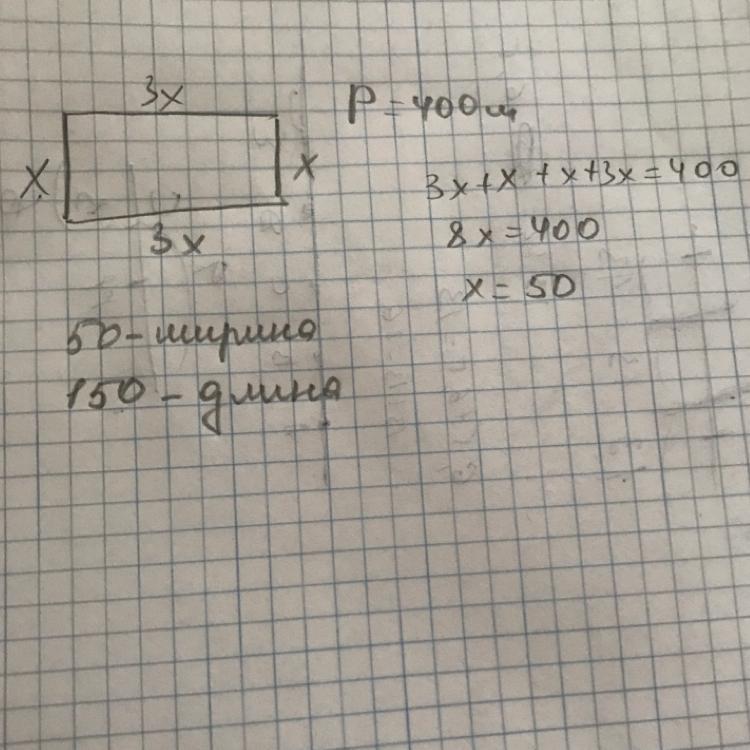 3x
P = 400 м
X
x
3x + x + x + 3x = 400
3x
8x = 400
x = 50
50 - ширина
150 - длина